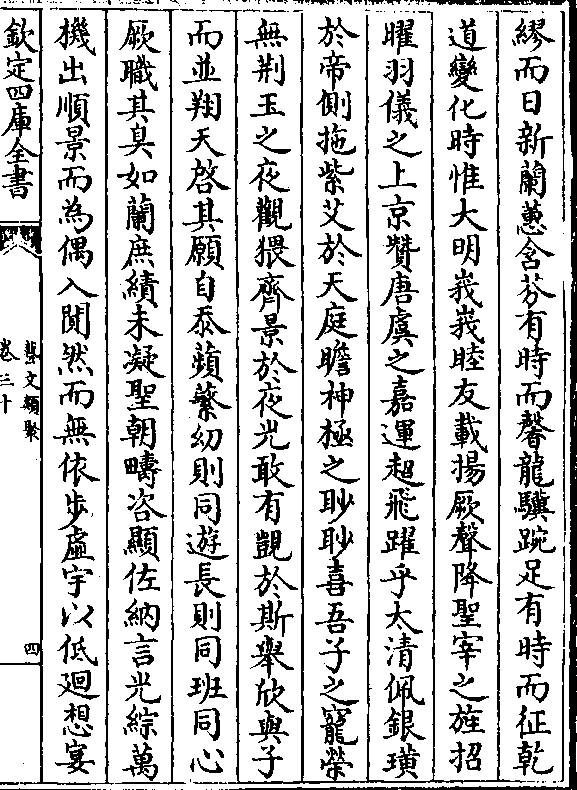 繆而日新蘭蕙含芬有時而馨龍驥踠足有時而征乾
道變化時惟大明峩峩睦友載揚厥聲降聖宰之旌招
曜羽儀之上京贊唐虞之嘉運超飛躍乎太清佩銀璜
於帝側拖紫艾於天庭瞻神極之眇眇喜吾子之寵榮
無荆玉之夜觀猥齊景於夜光敢有覬於斯舉欣與子
而並翔天啓其願自忝蘋蘩幼則同遊長則同班同心
厥職其臭如蘭庶績未凝聖朝疇咨顯佐納言光綜萬
機出順景而為偶入閴然而無依步虛宇以低迴想宴
欽定四庫全書
藝文類聚
卷三十
四